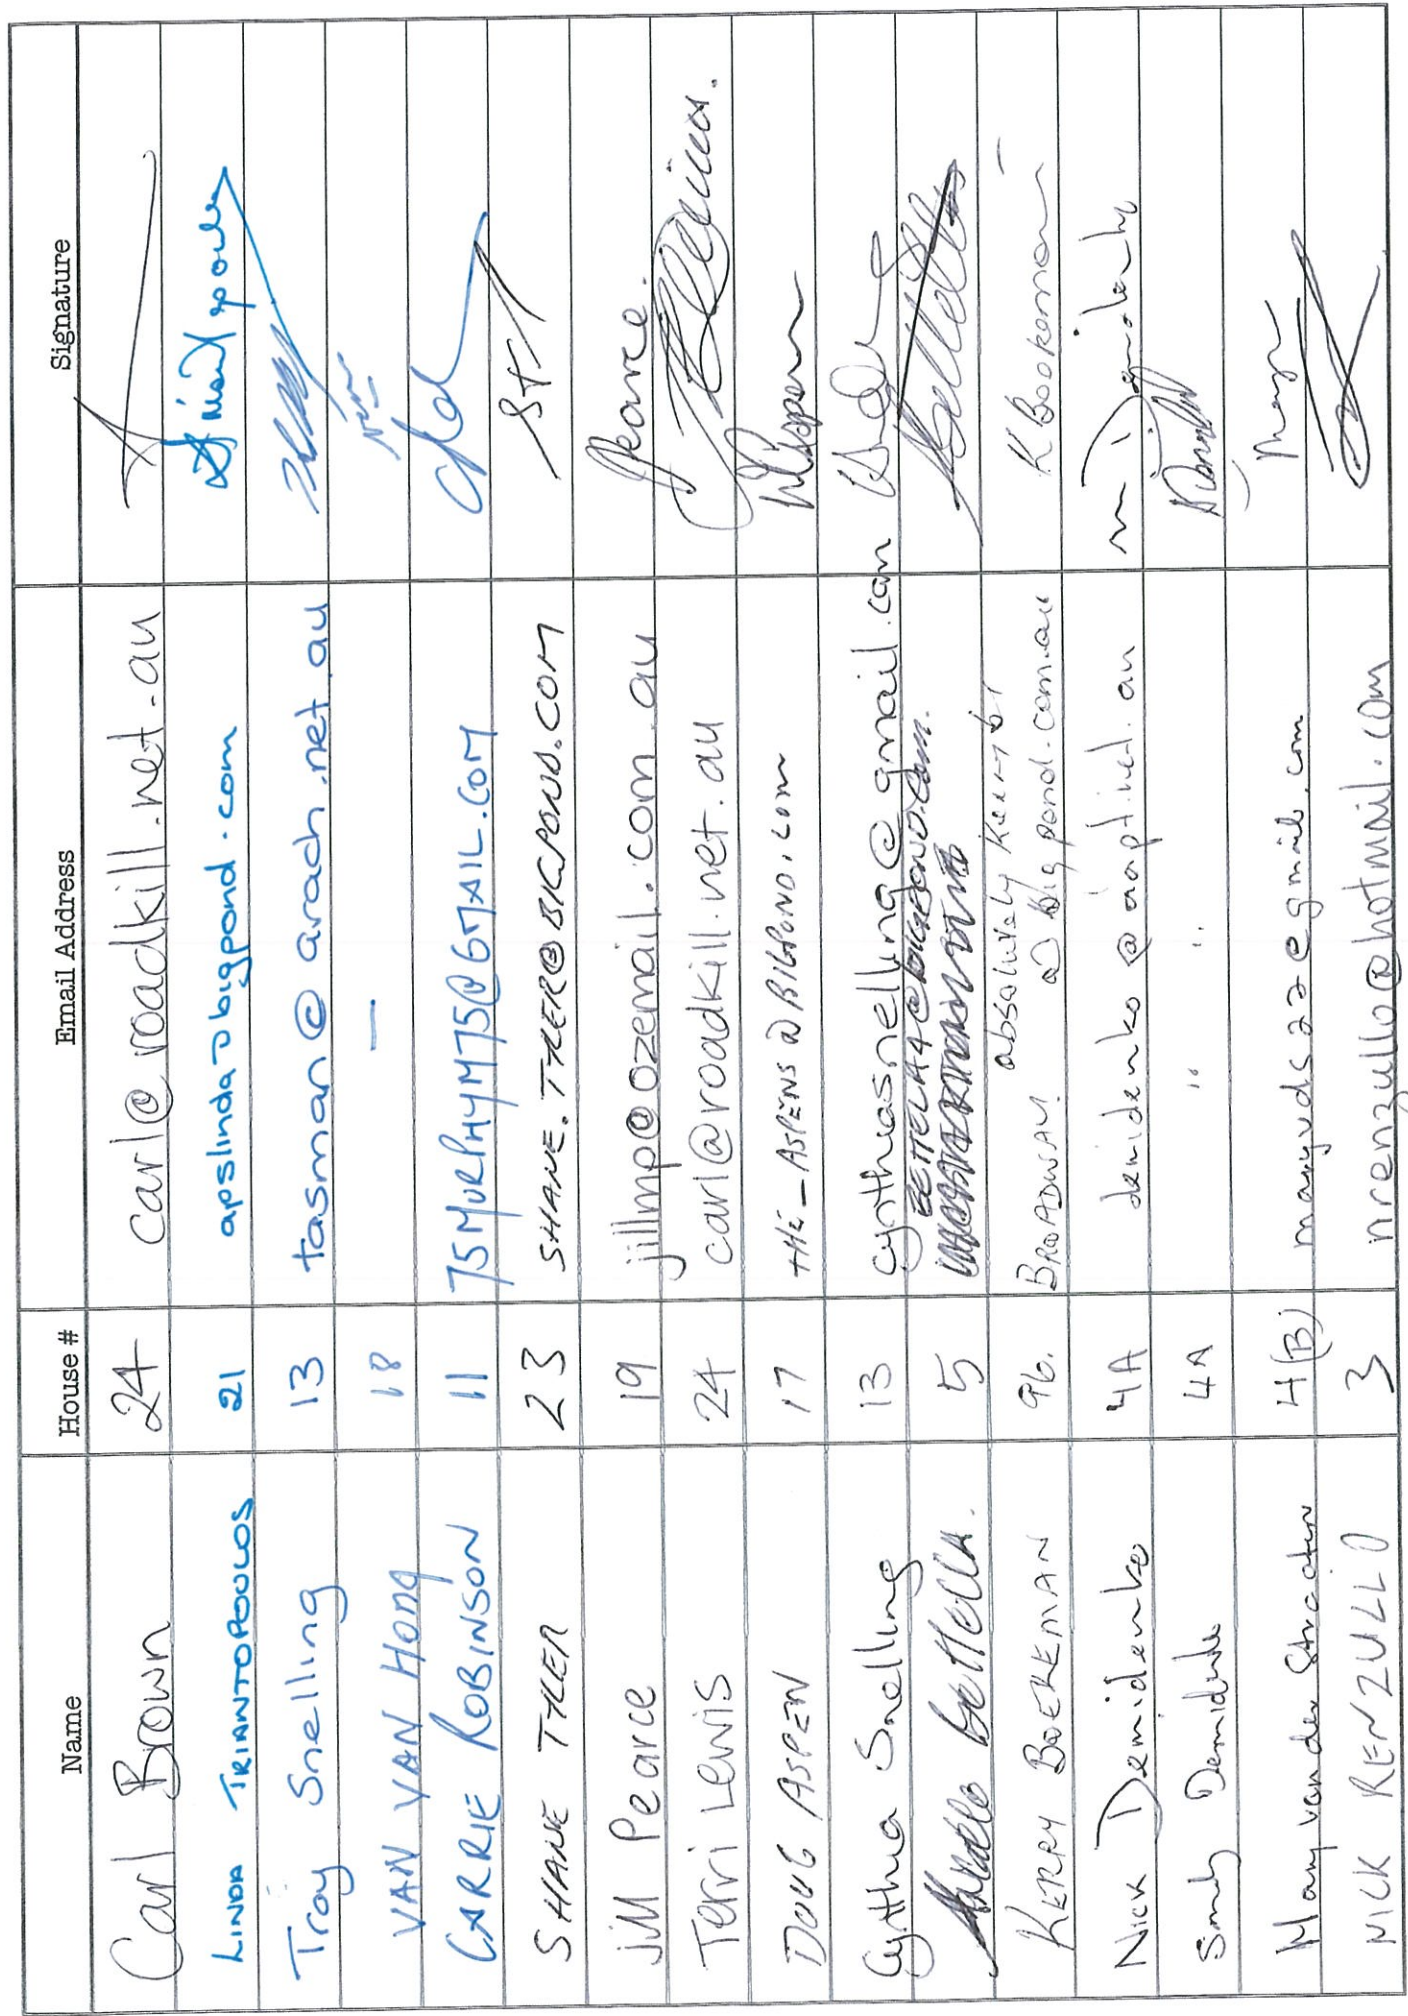 Name House # Email Address Signature
Carl Brown 24 carl@roadkill.net.au
LINDA TRIANTOPOULOS 21 apslinda@bigpond.com
Troy Snelling 13 tasman@arach.net.au
VAN VAN HONG 18 —
CARRIE ROBINSON 11 75MURPHYM75@GMAIL.COM
SHANE TYLER 23 SHANE.TYLER@BIGPOND.COM
Jill Pearce 19 jillmp@ozemail.com.au Jpearce.
Terri Lewis 24 carl@roadkill.net.au
DOUG ASPEN 17 THE_ASPENS@BIGPOND.com DAspen
Cynthia Snelling 13 cynthiasnelling@gmail.com
Bettella. 5 BETTELLA4@BIGPOND.Com.
KERRY BOEKEMAN 96. BROADWAY. absolutely
@ bigpond.com.au K Boekeman
Nick Demidenko 4A demidenko @ iinet.au
Sandy Demidenko 4A " "
Mary van der Straaten 4(B) maryvds22@gmail.com
NICK RENZULLO 3 nrenzullo@hotmail.com